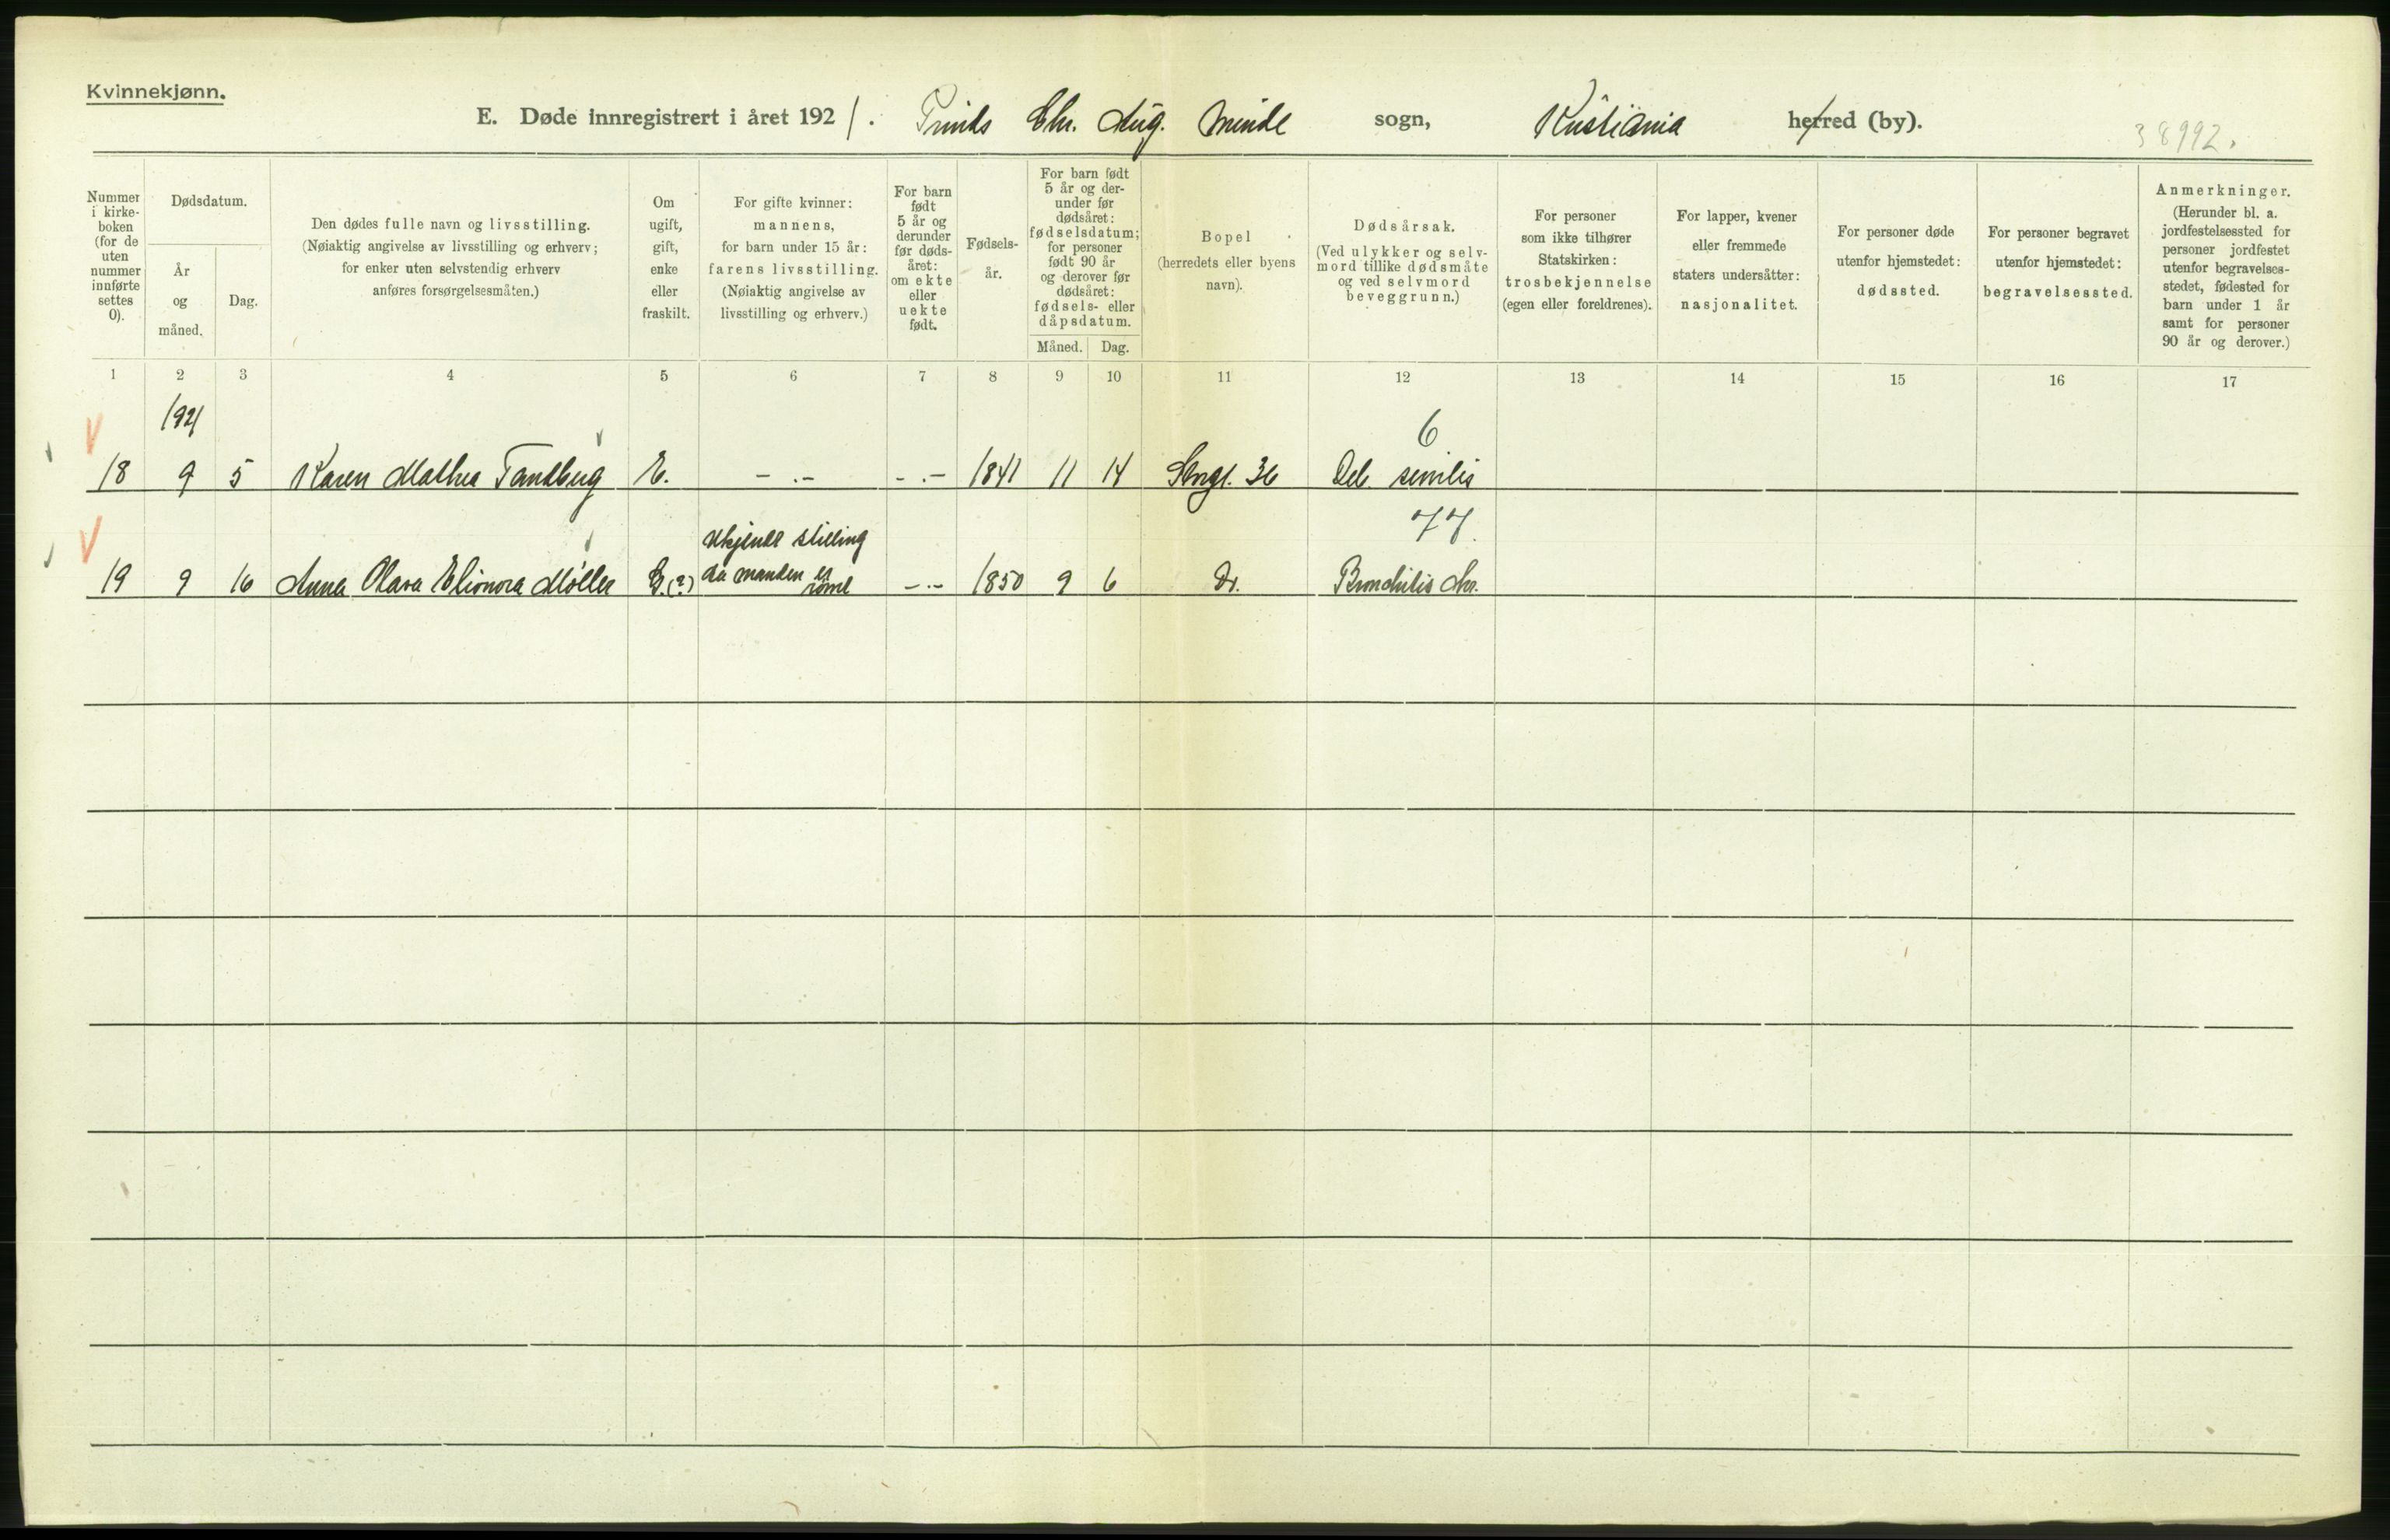 Kvinnekjønn.
E. Døde innregistrert i året 1921. Prinds Chr. Aug. Minde sogn, Kristiania herred (by).
38992.
Nummer i kirke-boken (for de uten nummer innførte settes 0).
Dødsdatum.
År og måned.
Dag.
Den dødes fulle navn og livsstilling.
(Nøiaktig angivelse av livsstilling og erhverv;
for enker uten selvstendig erhverv
anføres forsørgelsesmåten.)
Om
ugift,
gift,
enke
eller
fraskilt.
For gifte kvinner:
mannens,
for barn under 15 år:
farens livsstilling.
(Nøiaktig angivelse av
livsstilling og erhverv.)
For barn
født
5 år og
derunder
før døds-
året:
om ekte
eller
uekte
født.
Fødsels-
år.
For barn født
5 år og der-
under før
dødsåret:
fødselsdatum;
for personer
født 90 år
og derover før
dødsåret:
fødsels- eller
dåpsdatum.
Måned. Dag.
Bopel
(herredets eller byens
navn).
Dødsårsak.
(Ved ulykker og selv-
mord tillike dødsmåte
og ved selvmord
beveggrunn.)
For personer
som ikke tilhører
Statskirken:
trosbekjennelse
(egen eller foreldrenes).
For lapper, kvener
eller fremmede
staters undersåtter:
nasjonalitet.
For personer døde
utenfor hjemstedet:
dødssted.
For personer begravet
utenfor hjemstedet:
begravelsessted.
Anmerkninger.
(Herunder bl. a.
jordfestelsessted for
personer jordfestet
utenfor begravelses-
stedet, fødested for
barn under 1 år
samt for personer
90 år og derover.)
1 2 3 4 5 6 7 8 9 10 11 12 13 14 15 16 17
1921
6
18 9 5 Karen Mathea Tandberg E. - . - - . - 1841 11 14 Storgt. 36 Deb. senilis
77.
Ukjendt stilling
19 9 16 Anna Olava Elionora Møller G. (?) da manden er rømt - . - 1850 9 6 Do. Bronchitis chr.